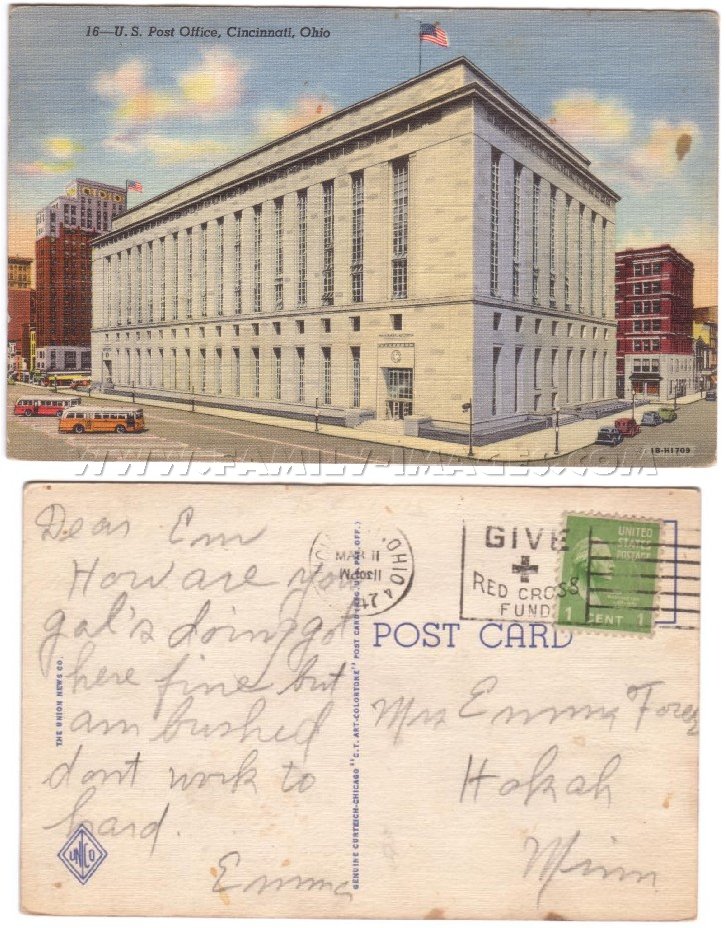 16—U. S. Post Office, Cincinnati, Ohio
1B-H1709
WWW.FAMILY-IMAGES.COM
Dear Em
How are you
gal's doing got
here fine but
am bushed
dont work to
hard.
Emma
THE UNION NEWS CO.
UNCO
GENUINE CURTEICH-CHICAGO "C.T. ART-COLORTONE" POST CARD (REG. U.S. PAT. OFF.)
MAR 11
11 30 PM
OHIO
GIVE
RED CROSS
FUND
UNITED
STATES
POSTAGE
1 CENT 1
POST CARD
Mrs Emma
Hokah
Minn